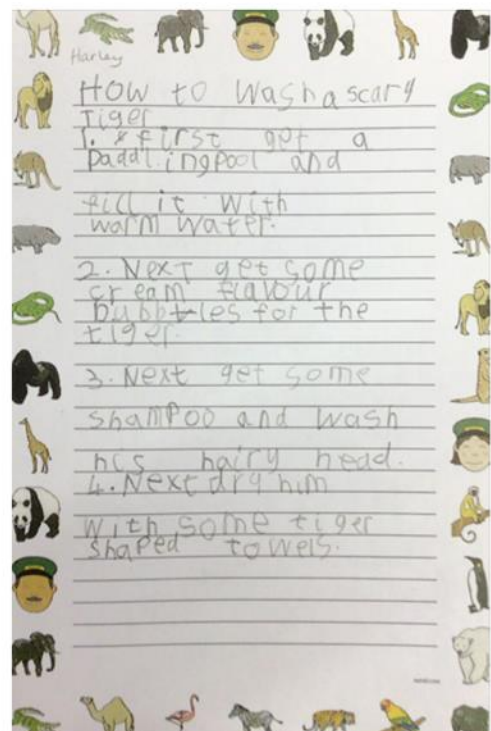 Harley
How to wash a scary
Tiger
1. first get a
paddlingpool and
fill it with
warm water.
2. Next get some
cream flavour
bubbles for the
tiger.
3. Next get some
shampoo and wash
his hairy head.
4. Next dry him
with some tiger
shaped towels.